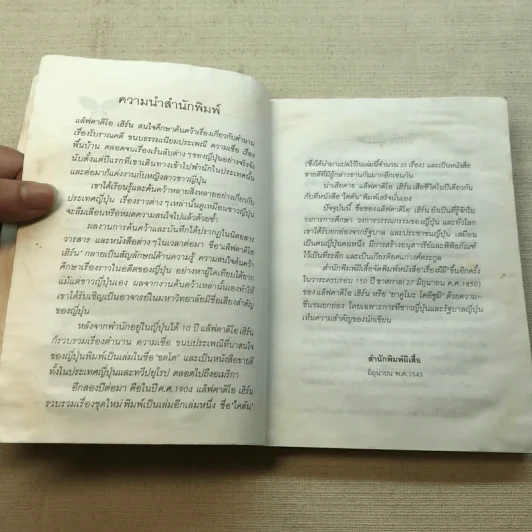 ความนำสำนักพิมพ์
แล็ฟคาดิโอ เฮิร์น สนใจศึกษาค้นคว้าเรื่องเกี่ยวกับตำนาน
เรื่องโบราณคดี ขนบธรรมเนียมประเพณี ความเชื่อ เรื่อง
พื้นบ้าน ตลอดจนเรื่องเร้นลับต่าง ๆ ของญี่ปุ่นอย่างจริงจัง
นับตั้งแต่ปีแรกที่เขาเดินทางเข้าไปพำนักในประเทศนั้น
และต่อมาก็แต่งงานกับหญิงสาวชาวญี่ปุ่น
เขาได้เรียนรู้และค้นคว้าหลายสิ่งหลายอย่างเกี่ยวกับ
ประเทศญี่ปุ่น เรื่องราวต่าง ๆ เหล่านั้นดูเหมือนชาวญี่ปุ่น
จะลืมเลือนหรือหมดความสนใจไปแล้วด้วยซ้ำ
ผลงานการค้นคว้าและบันทึกได้ปรากฏในนิตยสาร
วารสาร และหนังสือต่าง ๆ ในเวลาต่อมา ชื่อ'แล็ฟคาดิโอ
เฮิร์น' กลายเป็นสัญลักษณ์ด้านความรู้ ความสนใจค้นคว้า
ศึกษาเรื่องราวในอดีตของญี่ปุ่น อย่างหาผู้ใดเทียบได้ยาก
แม้แต่ชาวญี่ปุ่นเอง ผลจากงานค้นคว้าเหล่านั้นเองทำให้
เขาได้รับเชิญเป็นอาจารย์ในมหาวิทยาลัยมีชื่อเสียงสำคัญ
ของญี่ปุ่น
หลังจากพำนักอยู่ในญี่ปุ่นได้ 10 ปี แล็ฟคาดิโอ เฮิร์น
ก็รวบรวมเรื่องตำนาน ความเชื่อ ขนบประเพณีที่น่าสนใจ
ของญี่ปุ่นพิมพ์เป็นเล่มในชื่อ และเป็นหนังสือขายดี
ทั้งในประเทศญี่ปุ่นและทวีปยุโรป ตลอดไปถึงอเมริกา
อีกสองปีต่อมา คือในปี ค.ศ.1904 แล็ฟคาดิโอ เฮิร์น
รวบรวมเรื่องชุดใหม่ พิมพ์เป็นเล่มอีกเล่มหนึ่ง ชื่อ'ไคดัน'
(ซึ่งได้นำมาแปลไว้ในเล่มนี้จำนวน 20 เรื่อง) และเป็นหนังสือ
ขายดีที่มีผู้กล่าวขานกันมากอีกเช่นกัน
น่าเสียดาย แล็ฟคาดิโอ เฮิร์น เสียชีวิตในปีเดียวกัน
กับที่หนังสือ'ไคดัน'พิมพ์เสร็จนั่นเอง
ปัจจุบันนี้ ชื่อของแล็ฟคาดิโอ เฮิร์น ยังเป็นที่รู้จักใน
วงการการศึกษา วงการวรรณกรรมของญี่ปุ่น และทั่วโลก
เขาได้รับยกย่องจากรัฐบาล และประชาชนญี่ปุ่น เสมือน
เป็นคนญี่ปุ่นคนหนึ่ง มีการสร้างอนุสาวรีย์และพิพิธภัณฑ์
ไว้เป็นที่ระลึก และเป็นเกียรติยศแก่วงศ์ตระกูล
สำนักพิมพ์ผีเสื้อจัดพิมพ์หนังสือเรื่องผีผีขึ้นอีกครั้ง
ในวาระครบรอบ 150 ปีชาตกาล(27 มิถุนายน ค.ศ.1850)
ของแล็ฟคาดิโอ เฮิร์น หรือ 'ยาคุโมะ โคอิซุมิ' ด้วยความ
ชื่นชมยกย่อง โดยเฉพาะการที่ชาวญี่ปุ่นและรัฐบาลญี่ปุ่น
เห็นความสำคัญของนักเขียน
สำนักพิมพ์ผีเสื้อ
มิถุนายน พ.ศ.2543